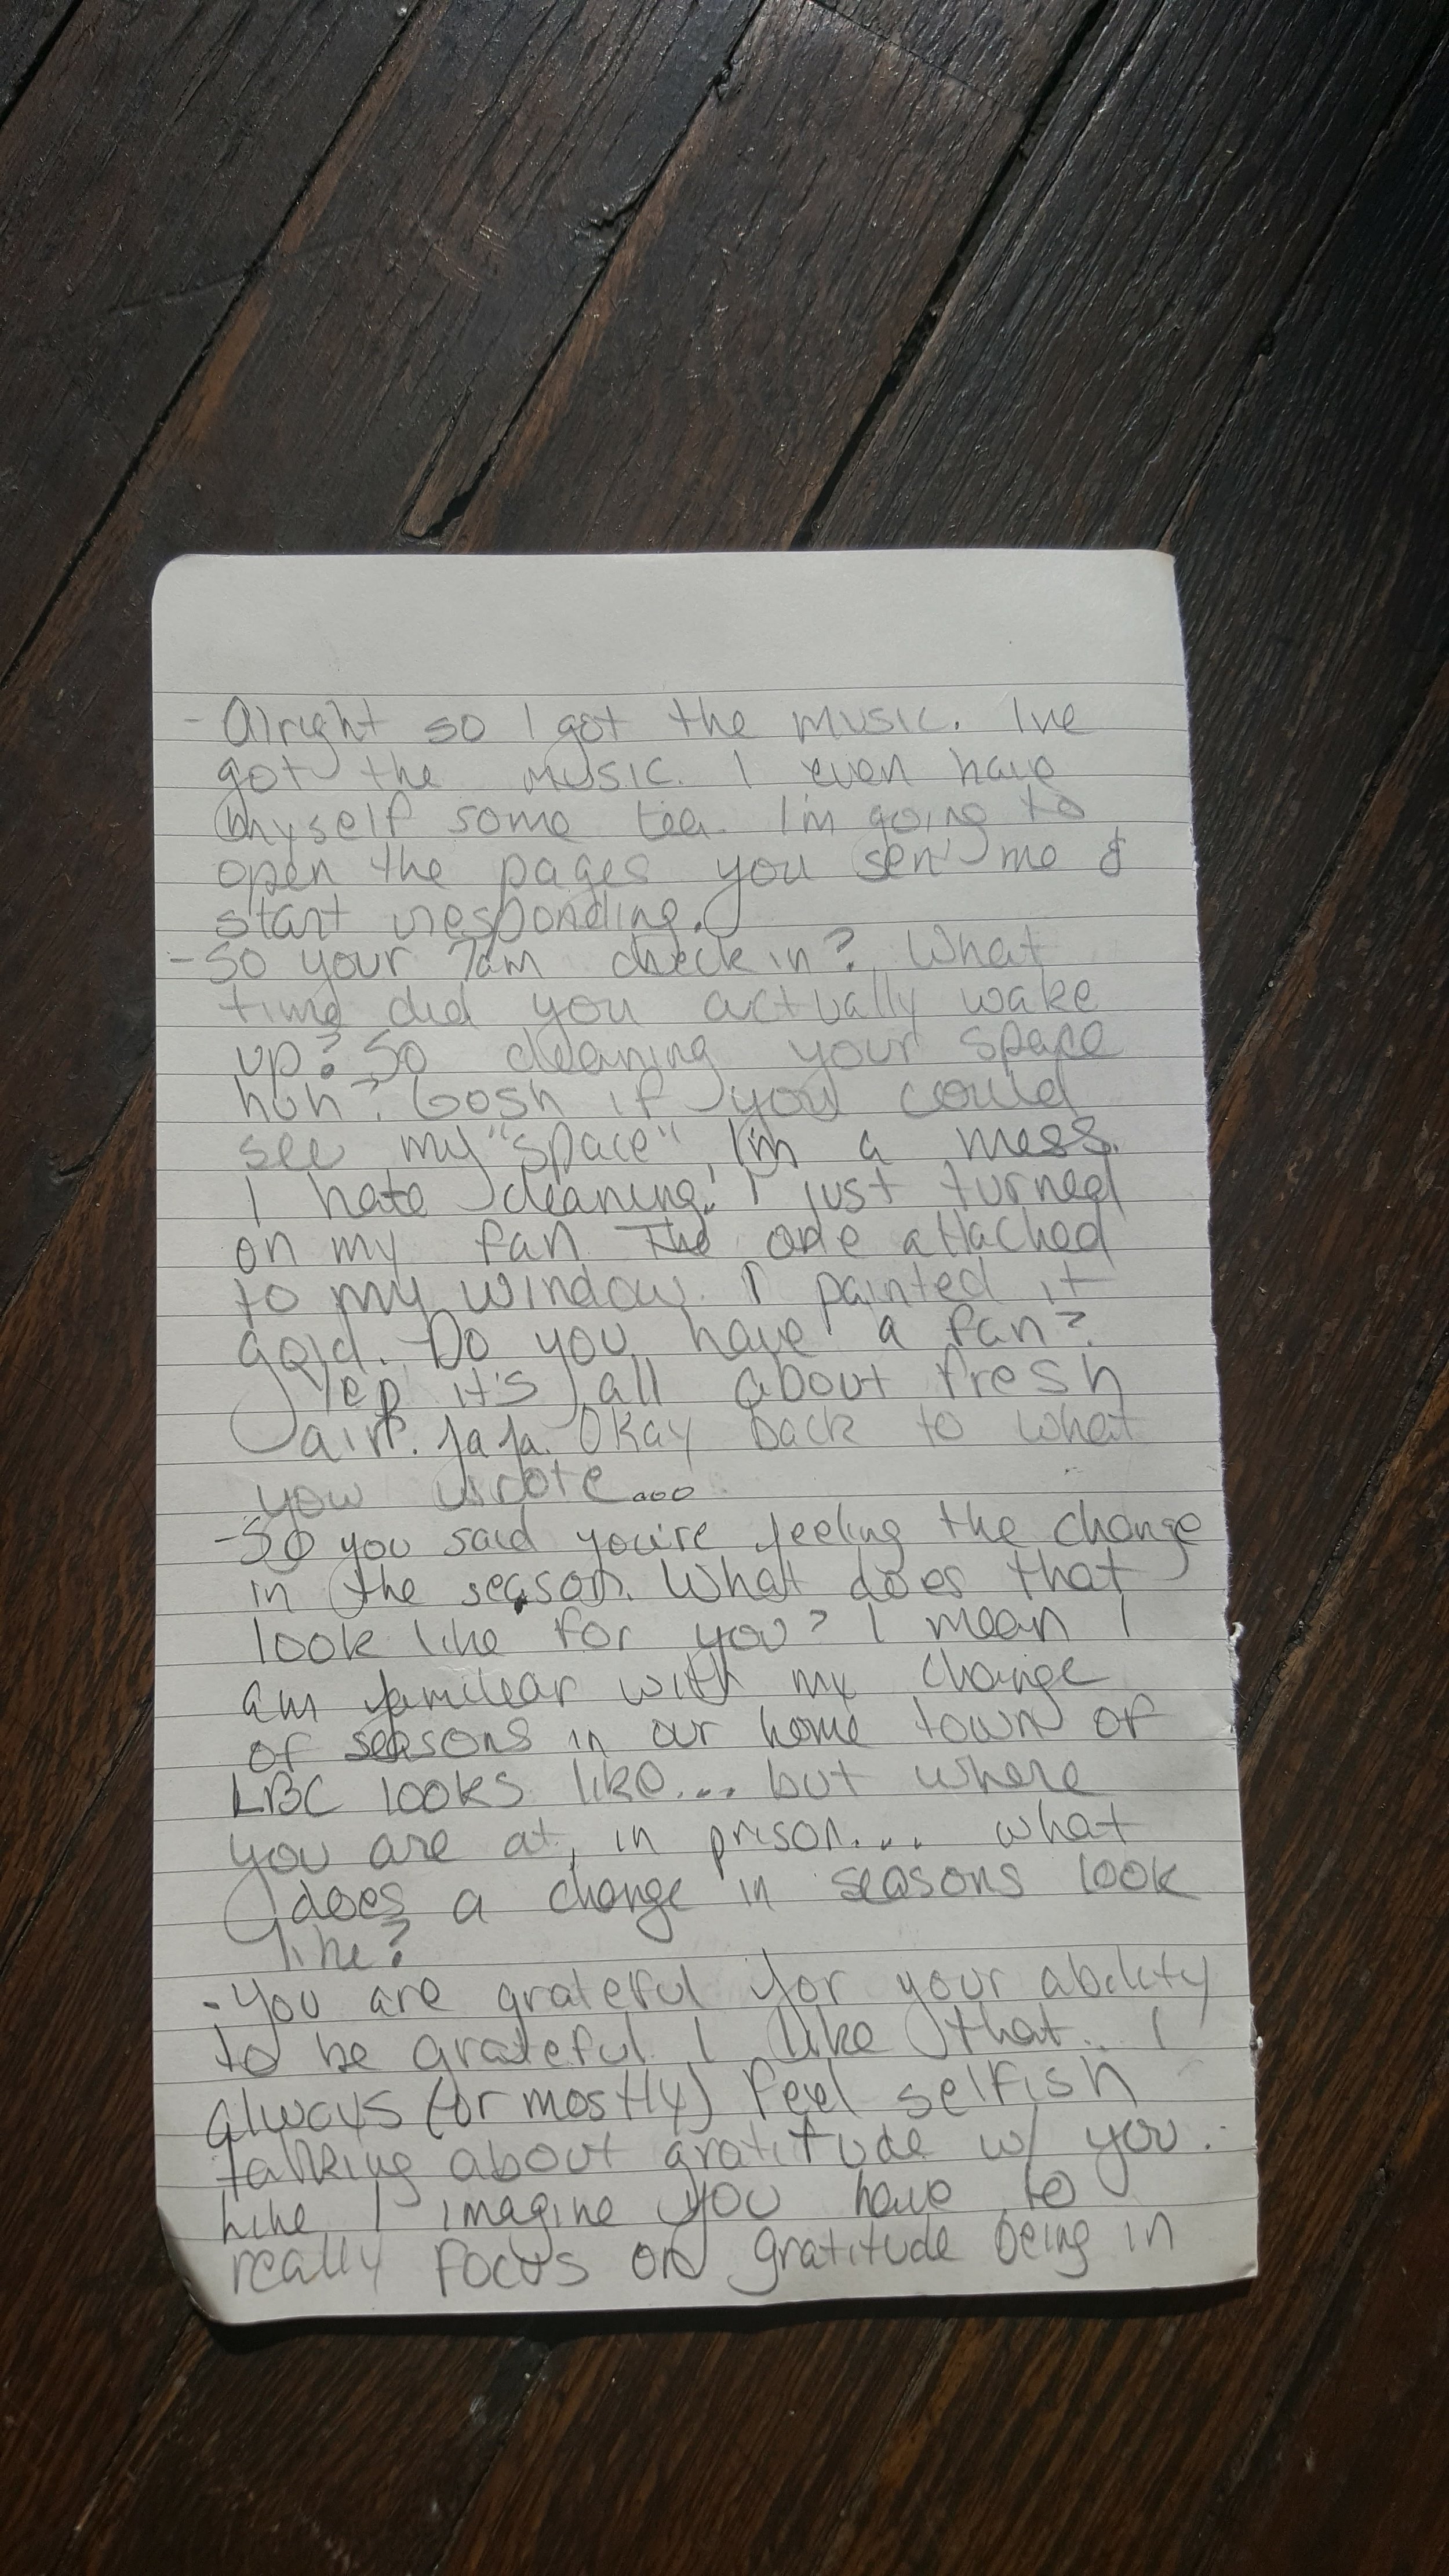 - Alright so I got the music. Ive
got the music. I even have
myself some tea. I'm going to
open the pages you sent me &
start responding.
- So your 7am check in? What
time did you actually wake
up? So cleaning your space
huh? Gosh if you could
see my "space", I'm a mess.
I hate cleaning! I just turned
on my fan. The one attached
to my window. I painted it
gold. Do you have a fan?
Yep it's all about fresh
air. Ja Ja. Okay back to what
you wrote...
- So you said you're feeling the change
in the season. What does that
look like for you? I mean I
am familear with my change
of seasons in our home town of
LBC looks like... but where
you are at, in prison.... what
does a change in seasons look
like?
- You are grateful for your ability
to be grateful. I like that. I
always (or mostly) feel selfish
talking about gratitude w/ you.
Like I imagine you have to
really focus on gratitude being in